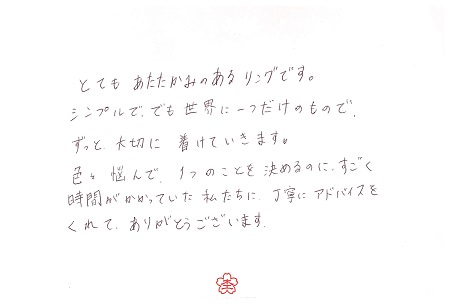 とても あたたかみのある リングです。
シンプルで、でも 世界に一つだけのもので、
ずっと、大切に 着けていきます。
色々 悩んで、1つのことを 決めるのに、すごく
時間がかかっていた 私たちに、丁寧に アドバイスを
くれて、ありがとうございます。